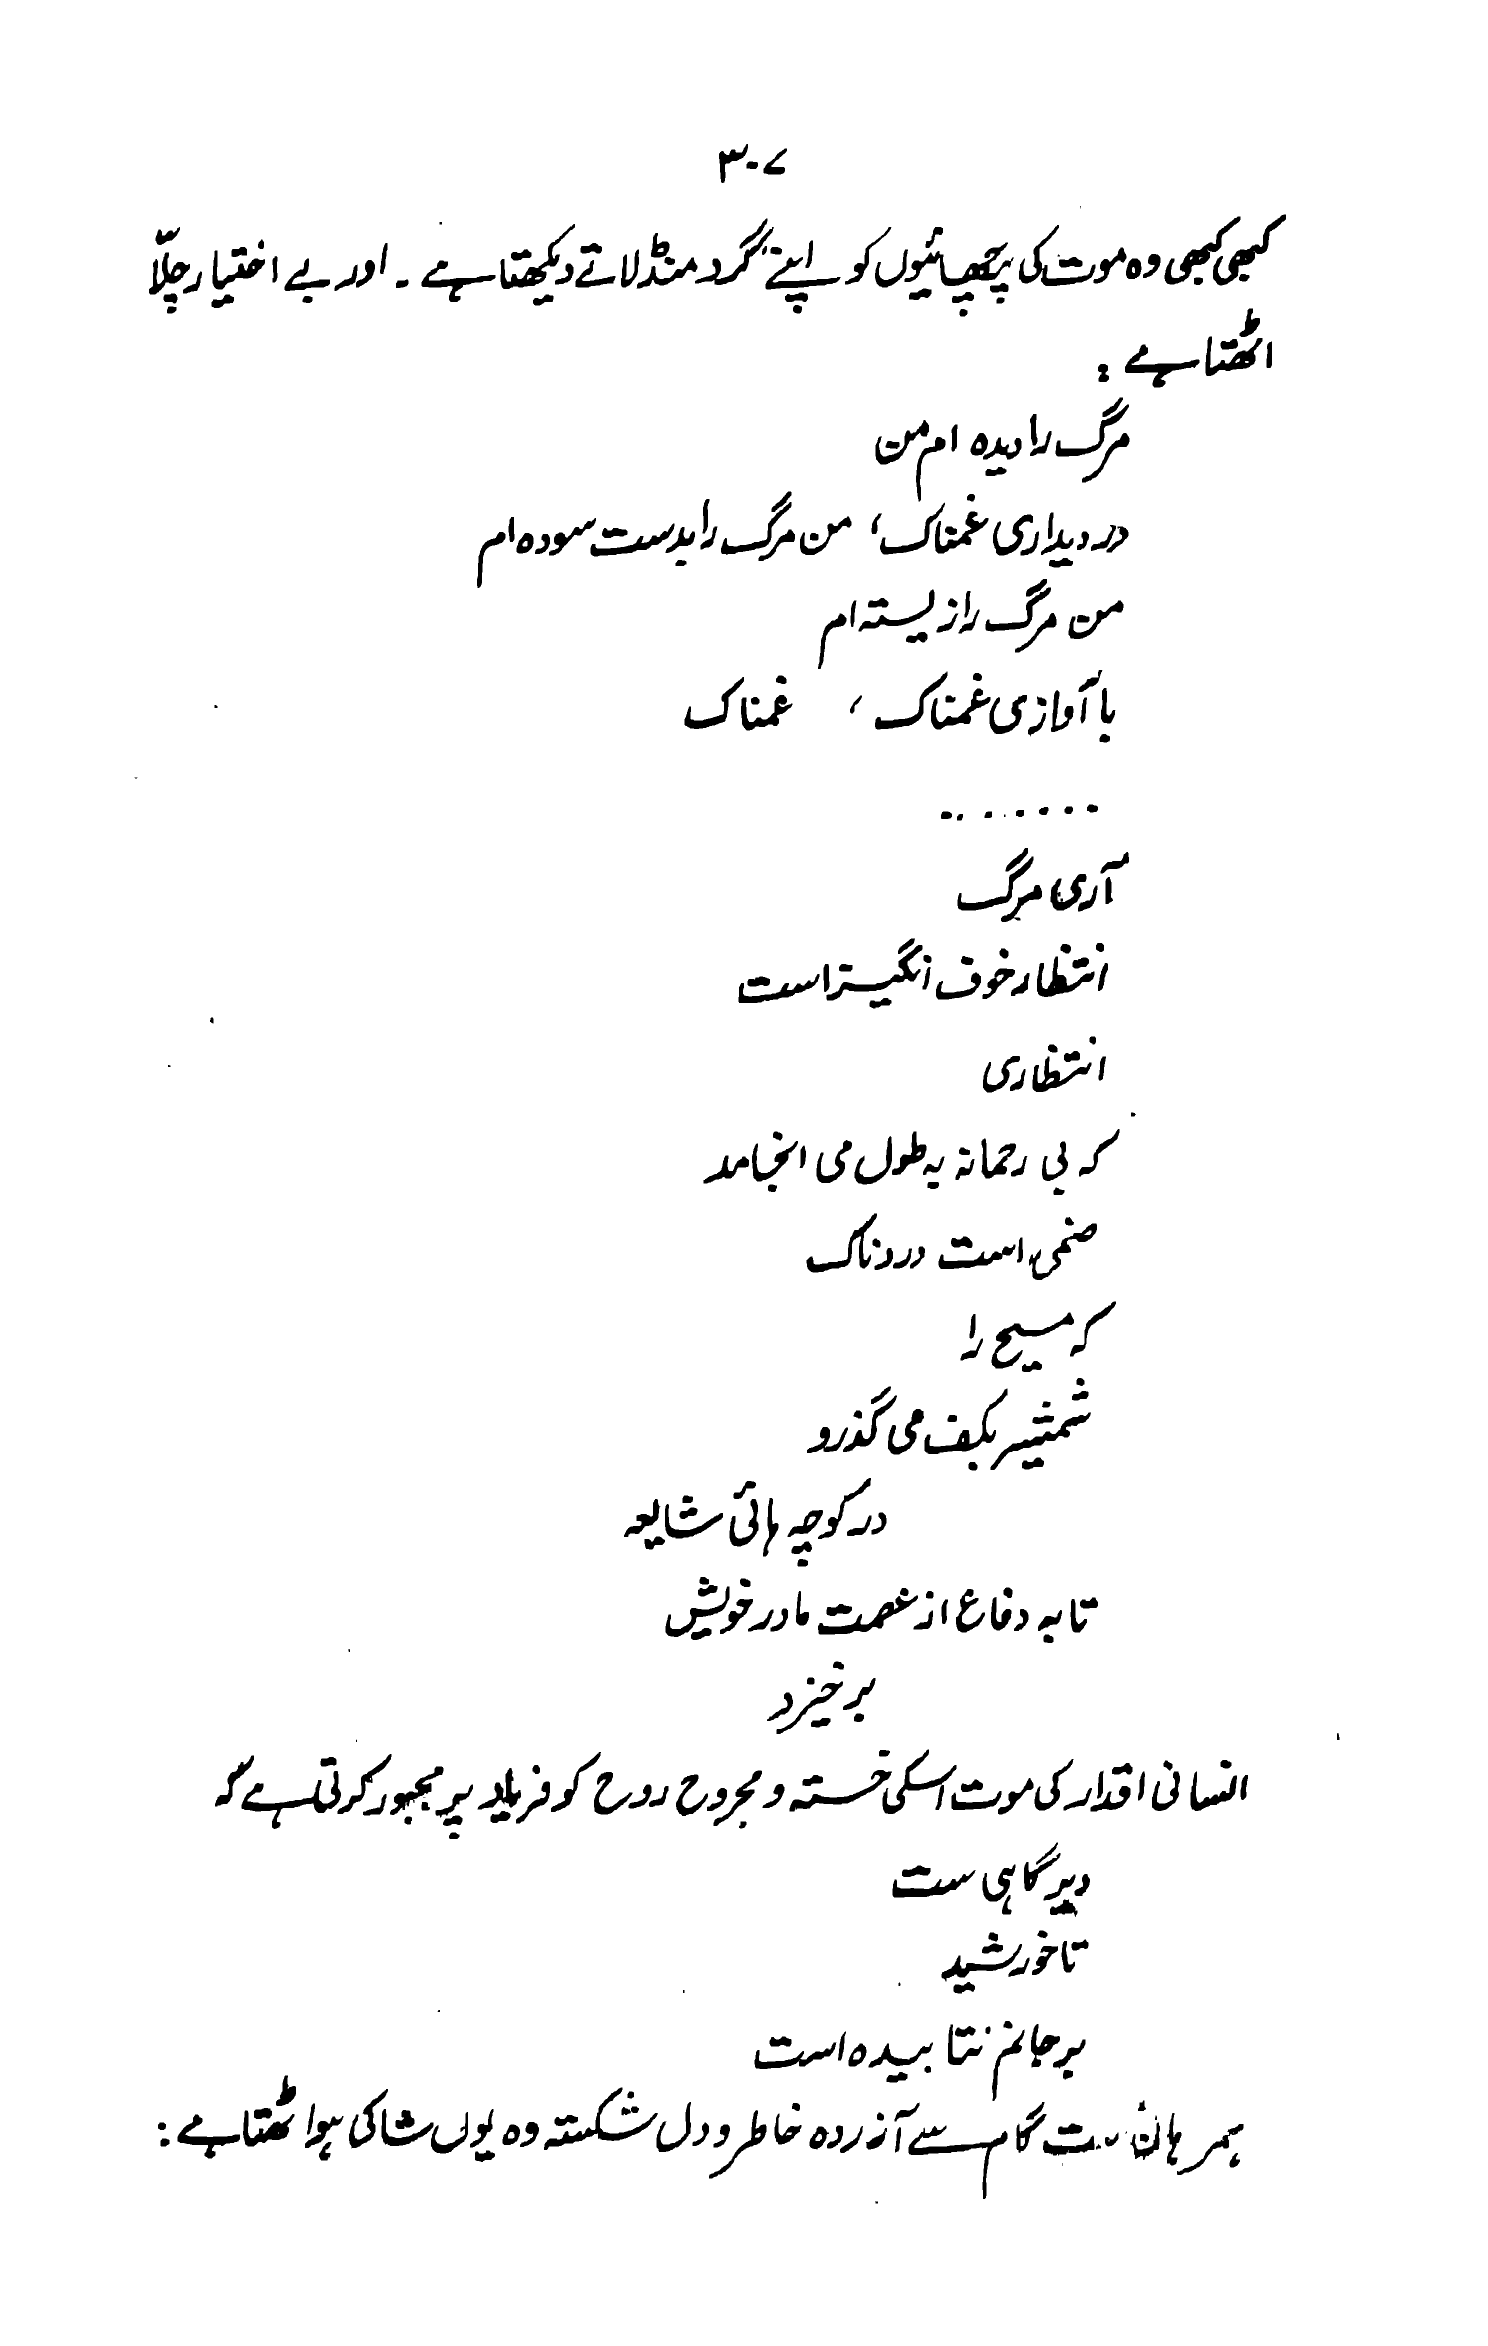 ۳۰۷
کبھی کبھی وہ موت کی پرچھائیوں کو اپنے گرد منڈلاتے دیکھتا ہے ۔ اور بے اختیار چلّا
اٹھتا ہے :
مرگ را دیدہ ام من
در دیداری غمناک، من مرگ را بدست سودہ ام
من مرگ را زیستہ ام
با آوازی غمناک ، غمناک
........
آری مرگ
انتظار خوف انگیز است
انتظاری
کہ بی رحمانہ بہ طول می انجامد
است دردناک
کہ مسیح را
شمشیر بکف می گذرو
در کوچہ ہائی شایعہ
تا بہ دفاع از عصمت مادر خویش
بر خیزد
انسانی اقدار کی موت اسکی خستہ و مجروح روح کو فریاد پر مجبور کرتی ہے کہ
دیر گاہی ست
تا خورشید
بر جانم نتابیدہ است
ہمرہان ست گام سے آزردہ خاطر و دل شکستہ وہ یوں شاکی ہوا ٹھتا ہے :